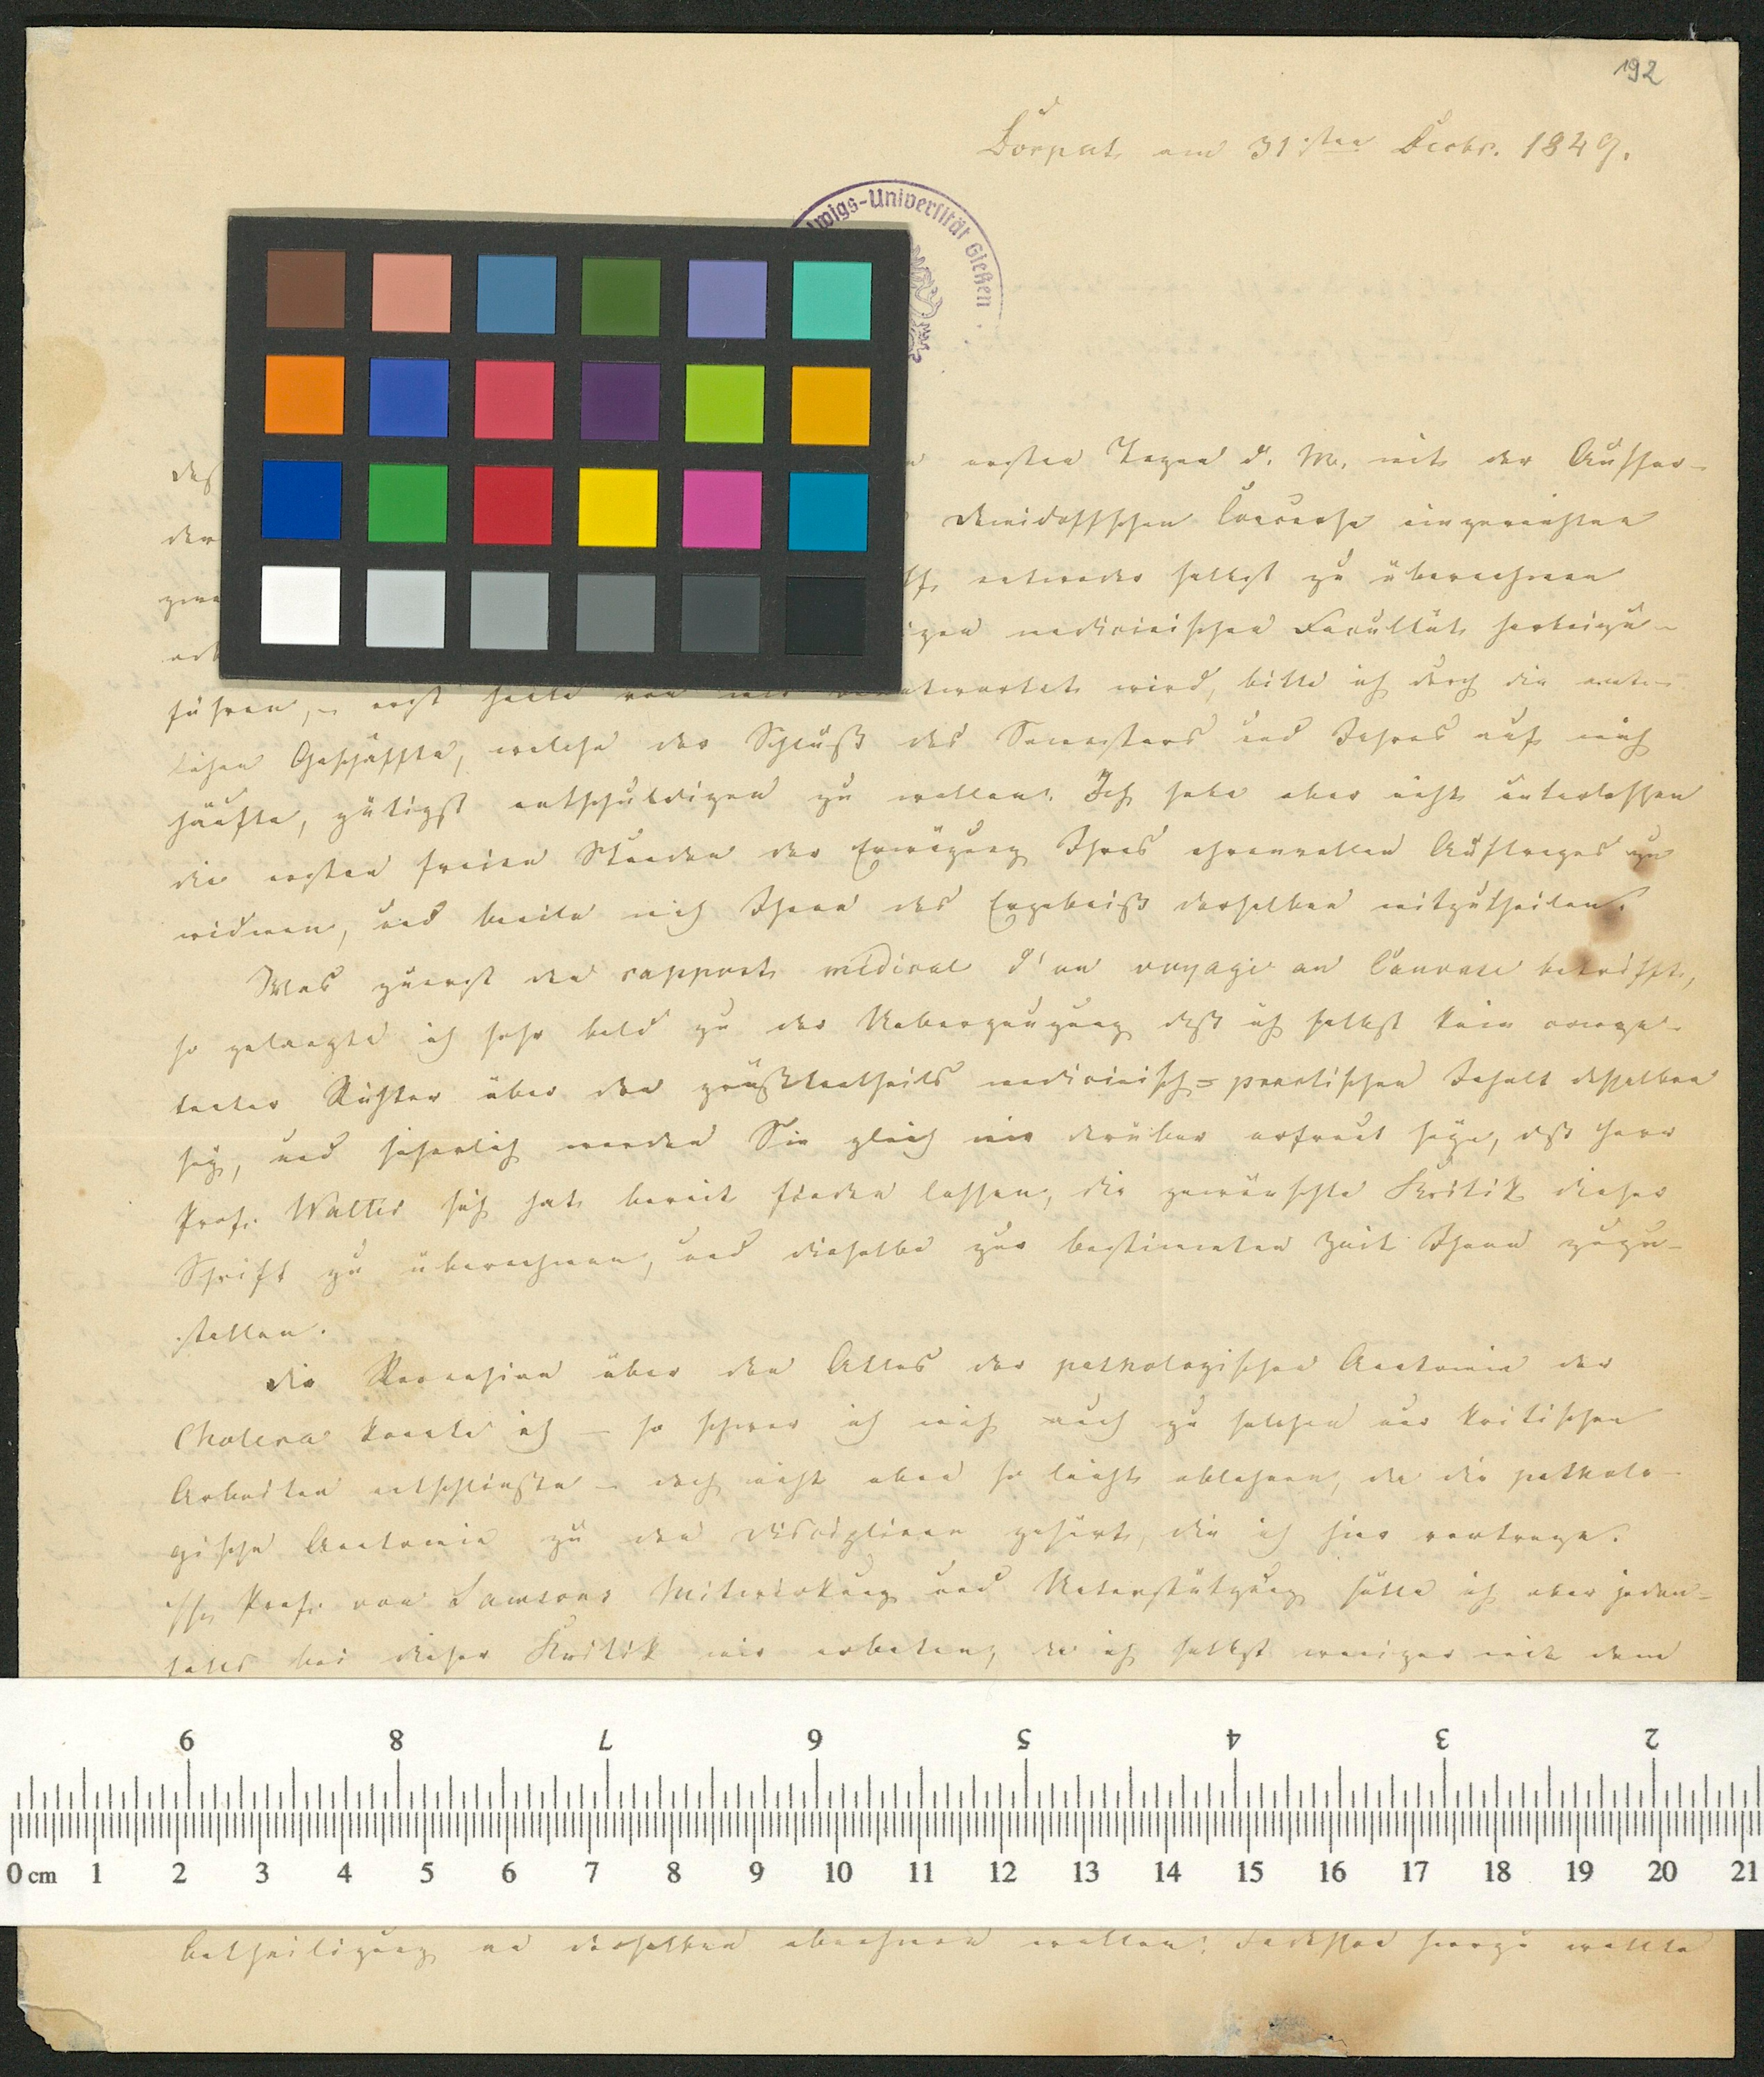 192
Dorpat am 31sten Decbr. 1849.
wigs-Universität Gießen
daß ersten Tagen d. M. mit der Auffor-
der Demidoffschen Concurse eingereichten
zwe entweder selbst zu übernehmen
od igen medicinischen Facultät herbeizu-
führen, – erst heute von mir beantwortet wird, bitte ich durch die amt-
lichen Geschäffte, welche der Schluß des Semesters und Jahres auf mich
häufte, gütigst entschuldigen zu wollen. Ich habe aber nicht unterlassen
die ersten freien Stunden der Erwägung Ihres ehrenvollen Auftrages zu
widmen, und beeile mich Ihnen das Ergebniß derselben mitzutheilen.
Was zuerst den rapport médical d'un voyage au Caucase betrifft,
so gelangte ich sehr bald zu der Ueberzeugung daß ich selbst kein compe-
tenter Richter über den größtentheils medicinisch-practischen Inhalt desselben
sey, und sicherlich werden Sie gleich mir darüber erfreut seyn, daß Herr
Prof. Walter sich hat bereit finden lassen, die gewünschte Kritik dieser
Schrift zu übernehmen, und dieselbe zur bestimmten Zeit Ihnen zuzu-
stellen.
Die Recension über den Atlas der pathologischen Anatomie der
Cholera konnte ich – so schwer ich mich auch zu solchen nur kritischen
Arbeiten entschließe – doch nicht eben so leicht ablehnen, da die patholo-
gische Anatomie zu den Disciplinen gehört, die ich hier vortrage.
Prof. von Samsons Mitwirkung und Unterstützung hätte ich aber jeden-
falls bei dieser Kritik mir erbeten, da ich selbst weniger mit dem
9 8 7 6 5 4 3 2
0 cm 1 2 3 4 5 6 7 8 9 10 11 12 13 14 15 16 17 18 19 20 21
Betheiligung an derselben abnehmen wollen. Indessen hierzu wollte